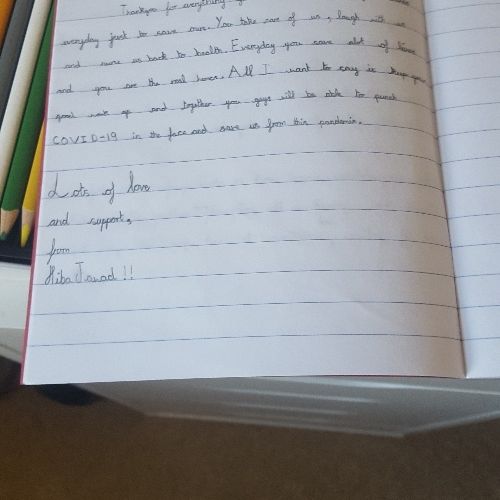 Thankyou for everything
everyday just to save ours. You take care of us, laugh with us
and nurse us back to health. Everyday you save alot of lives
and you are the real heros. All I want to say is keep your
good work up and together you guys will be able to punch
COVID-19 in the face and save us from this pandemic.
Lots of love
and support,
from
Hiba Jawad !!